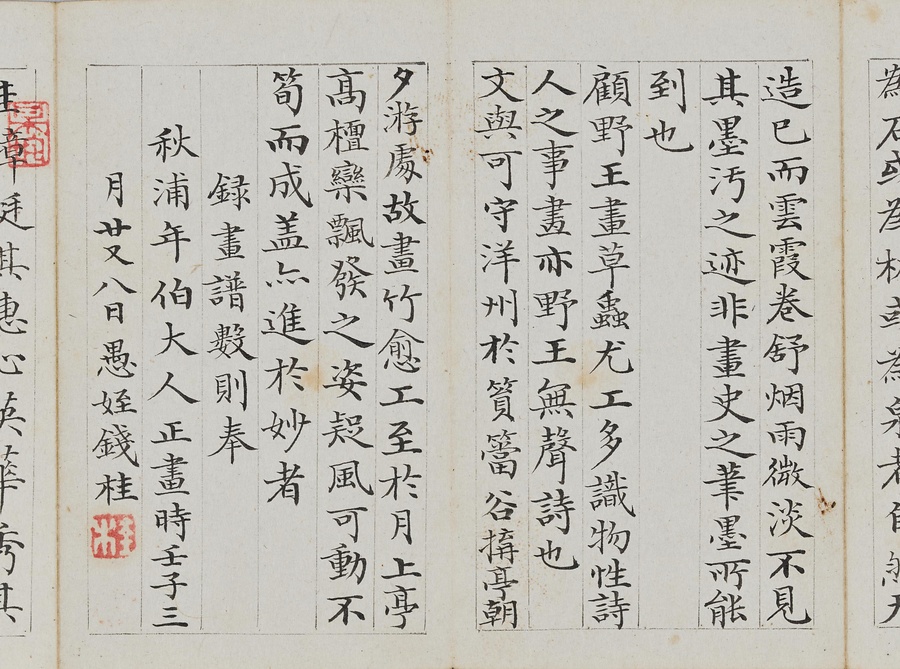 為石或為林或為泉者自然天
造已而雲霞卷舒烟雨微淡不見
其墨汚之迹非畫史之筆墨所能
到也
顧野王畫草蟲尤工多識物性詩
人之事畫亦野王無聲詩也
文與可守洋州於篔簹谷搆亭朝
夕游處故畫竹愈工至於月上亭
髙檀欒飄發之姿疑風可動不
筍而成盖亦進於妙者
録畫譜數則奉
秋浦年伯大人正畫時壬子三
月廿又八日愚姪錢桂
桂
圭璋挺其惠心英華秀其